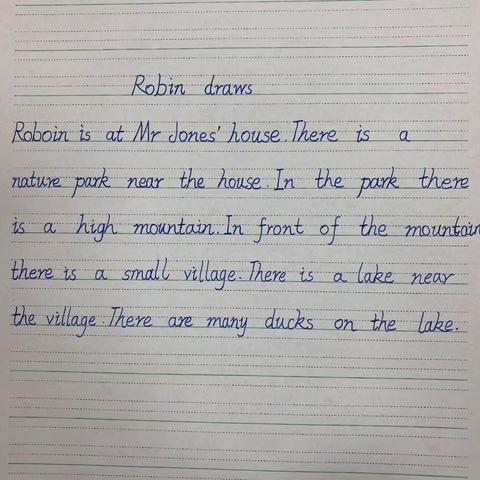 Robin draws
Roboin is at Mr Jones' house. There is a
nature park near the house. In the park there
is a high mountain. In front of the mountain
there is a small village. There is a lake near
the village. There are many ducks on the lake.